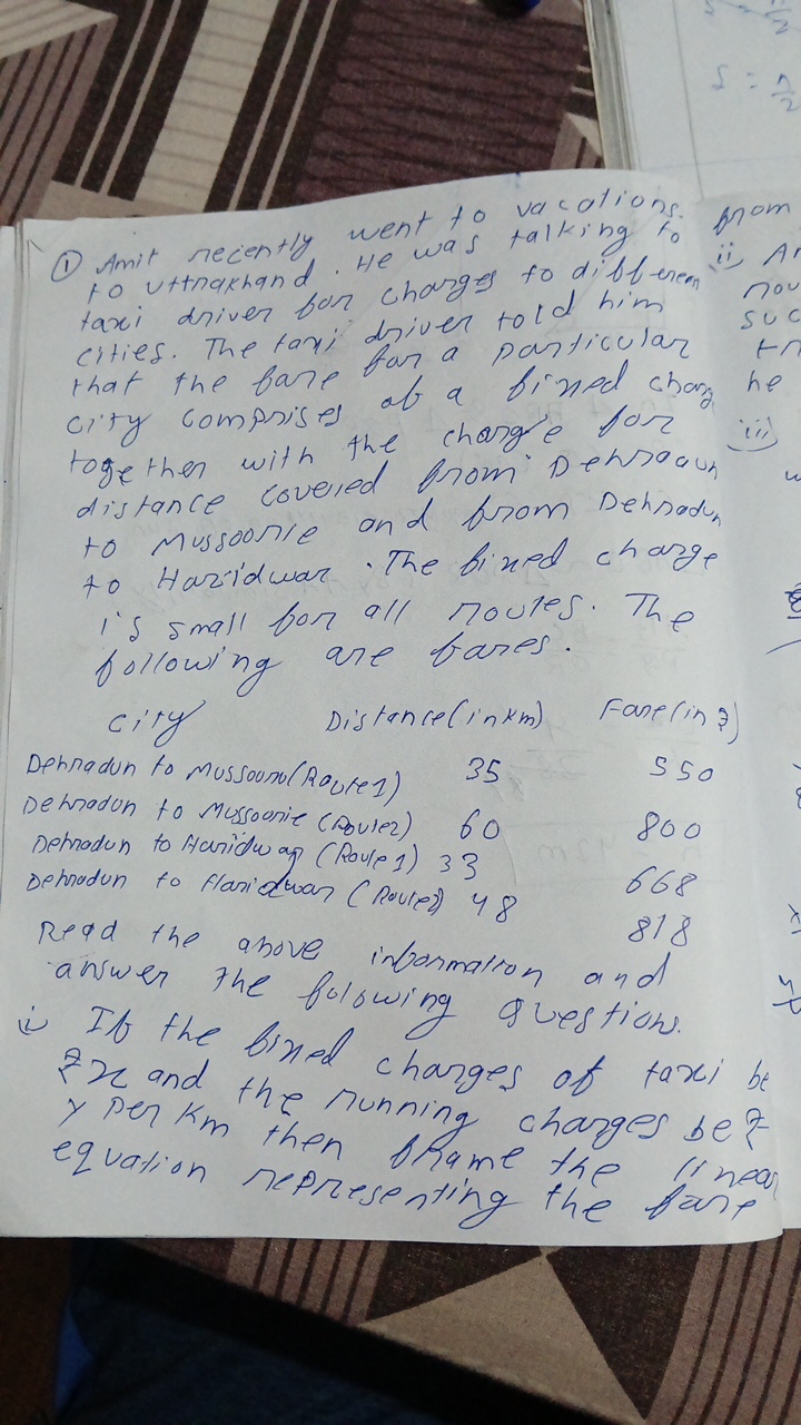 ① Amit recently went to vacations.
to Uttrakhand. He was talking to
taxi driver for charges to differen
cities. The taxi driver told him
that the fare for a particular
city comprises of a fixed charg
together with the charge for
distance covered from Dehradun
to Mussoorie and from Dehradun
to Haridwar. The fixed charge
is small for all routes. The
following are fares.
city Distance (in km) Fare (in ₹)
Dehradun to Mussoorie (Route 1) 35 550
Dehradun to Mussoorie (Route 2) 60 800
Dehradun to Haridwar (Route 1) 33 668
Dehradun to Haridwar (Route 2) 48 818
Read the above information and
answer the folowing questions.
i) If the fixed charges of taxi be
₹ x and the running charges be ₹
y per km then frame the linear
equation representing the fare
from
ii) A
rou
suc
he
iii)